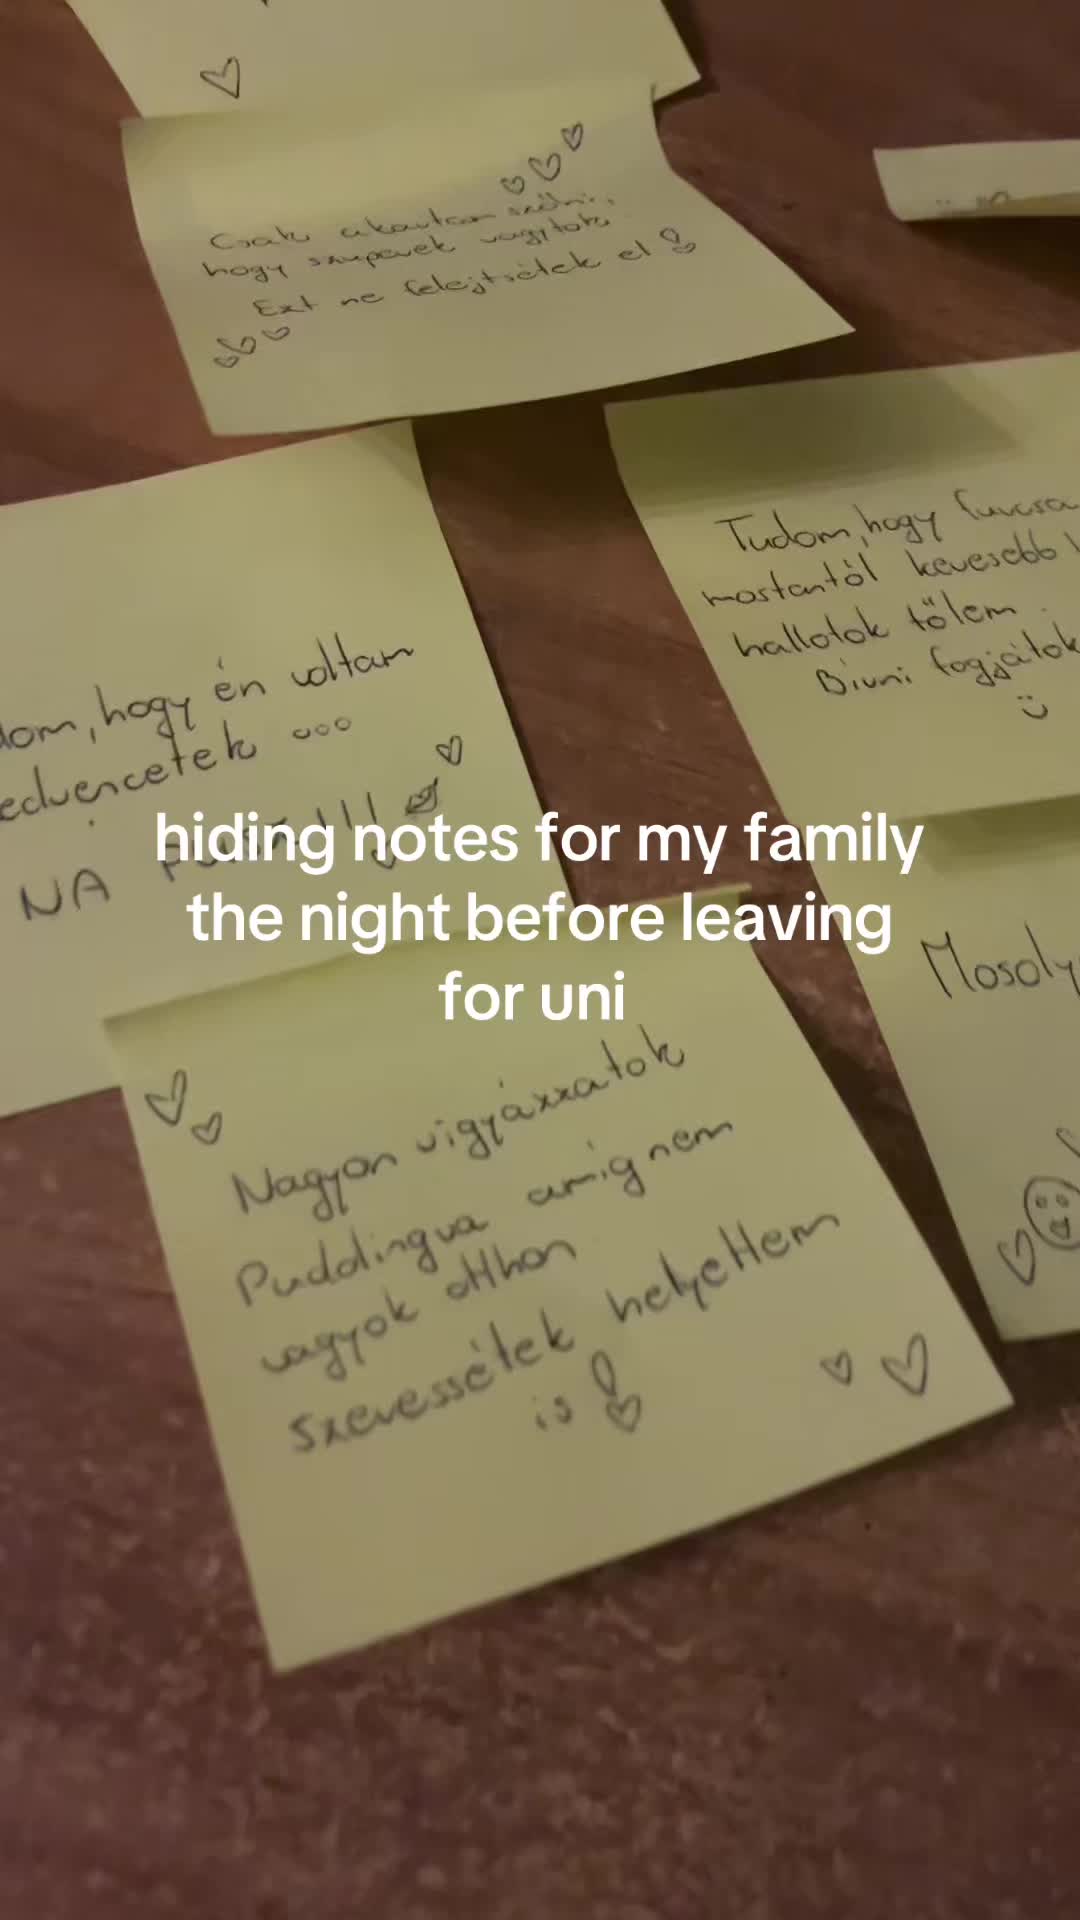 Csak akartam szólni,
hogy szuperek vagytok
Ezt ne felejtsétek el!
Tudom, hogy furcsa
mostantól kevesebb
hallotok tőlem.
Bírni fogjátok
dom, hogy én voltam
edvencetek ...
NA PUSZI!!!
hiding notes for my family
the night before leaving
for uni
Mosoly
Nagyon vigyázzatok
Puddingra amíg nem
vagyok otthon
szeressétek helyettem
is!